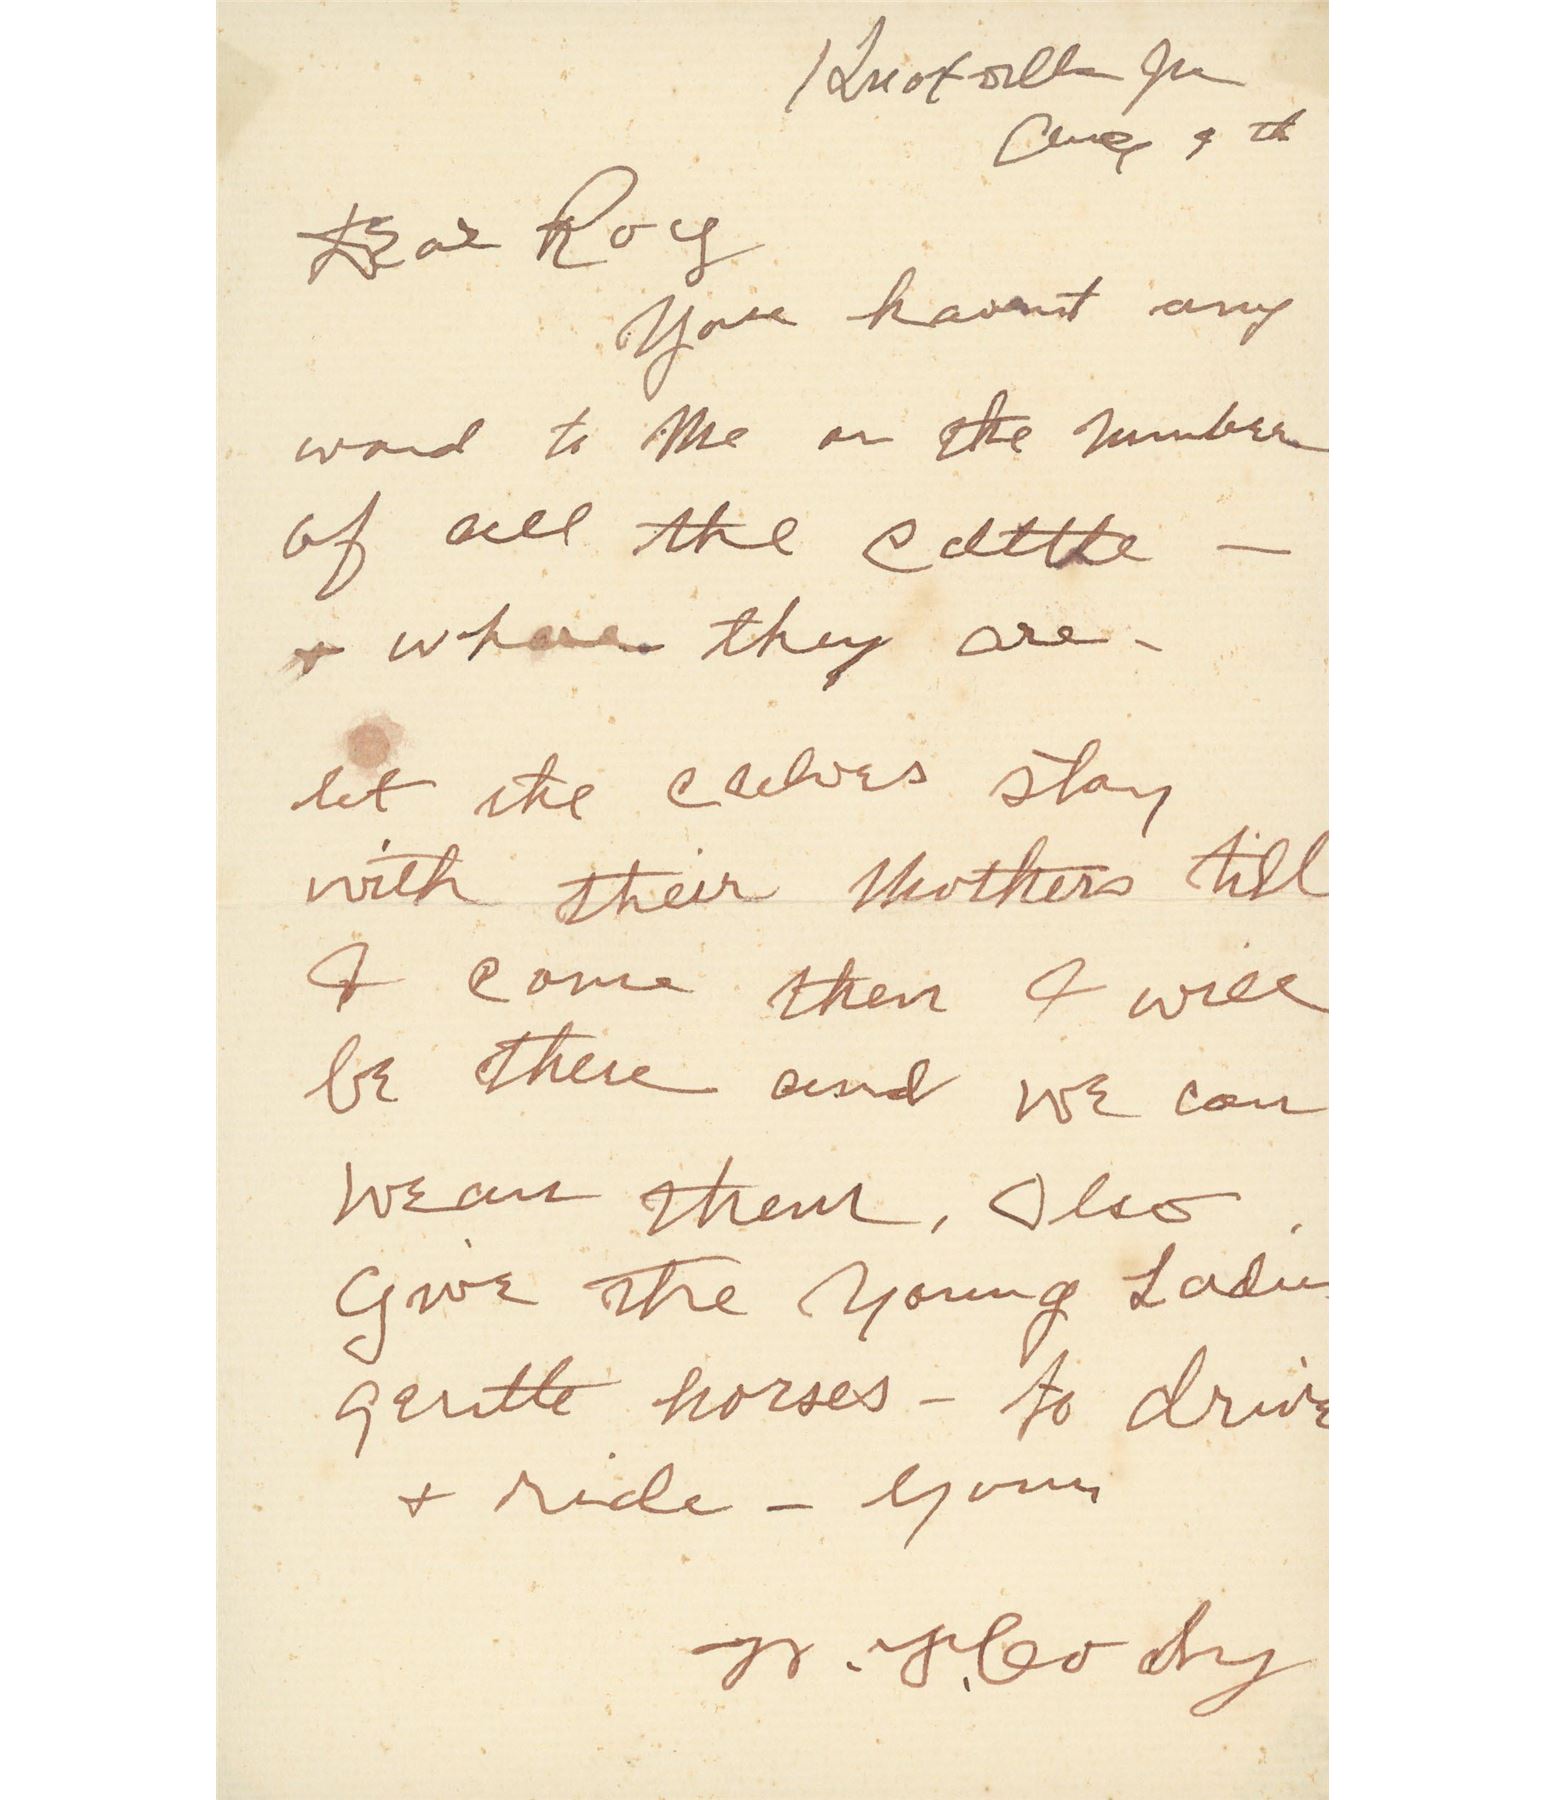 Knoxville Tn
Aug 9 th
Dear Roy
You havent any
word to Me on the number
of all the Cattle —
+ where they are -
let the calves stay
with their Mothers till
I come then I will
be there and we can
wean them, Also
Give the Young Ladies
gentle horses - to drive
+ ride - Yours
W. F. Cody